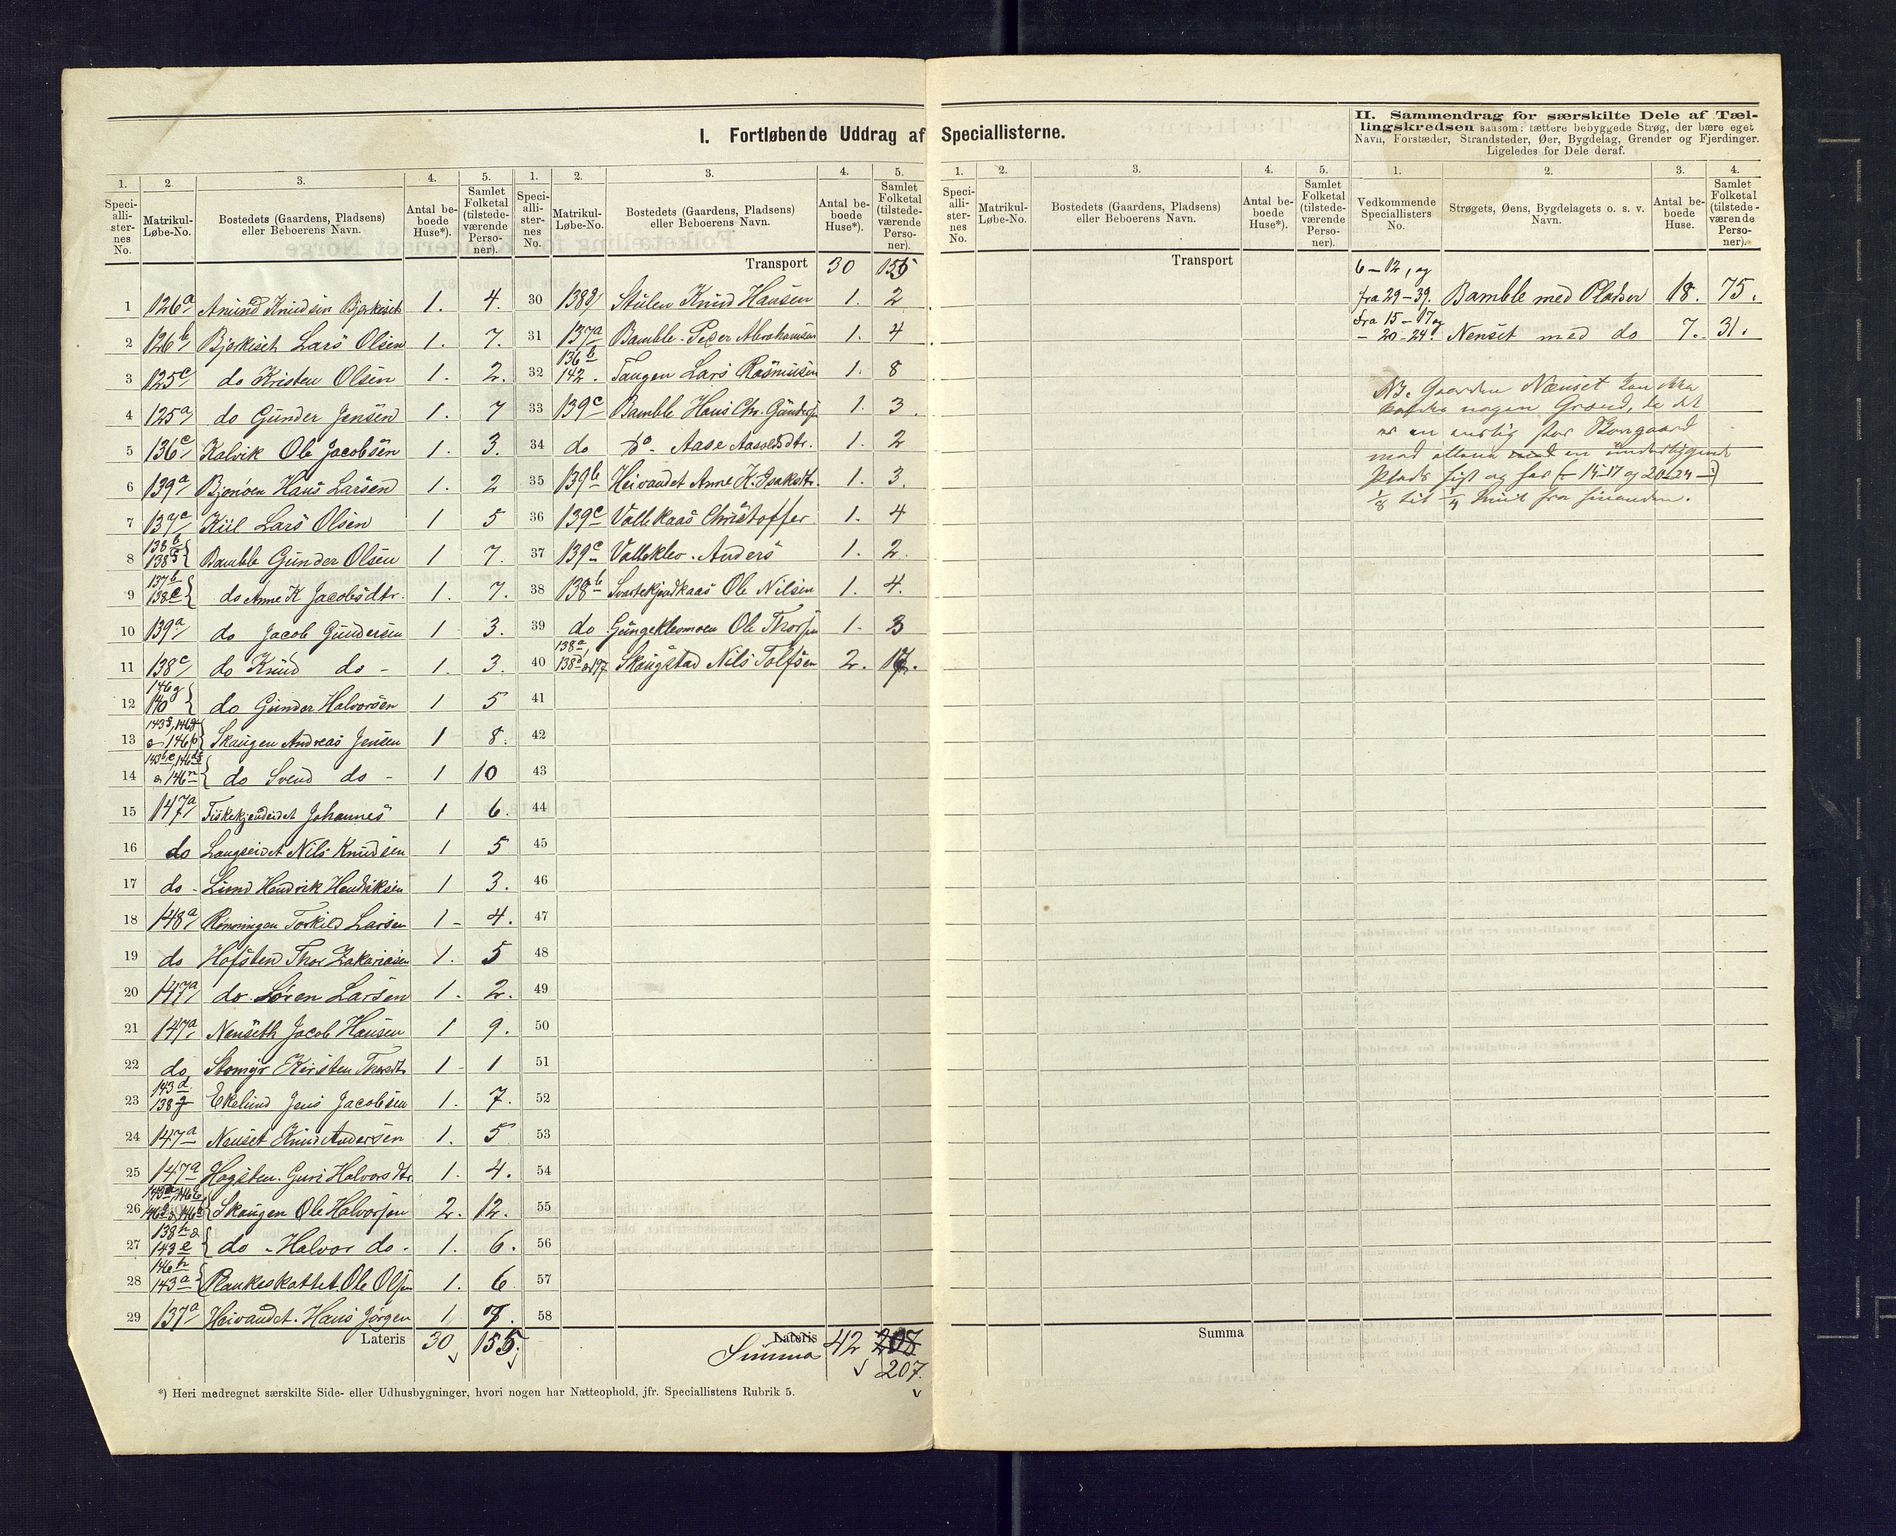 I. Fortløbende Uddrag af Speciallisterne.
II. Sammendrag for særskilte Dele af Tæl-
lingskredsen saasom: tættere bebyggede Strøg, der bære eget
Navn, Forstæder, Strandsteder, Øer, Bygdelag, Grender og Fjerdinger.
Ligeledes for Dele deraf.
1. 2. 3. 4. 5. 1. 2. 3. 4. 5.
Speciallisternes No. Matrikul-Løbe-No. Bostedets (Gaardens, Pladsens) eller Beboerens Navn. Antal beboede Huse*). Samlet Folketal (tilstedeværende Personer). Speciallisternes No. Matrikul-Løbe-No. Bostedets (Gaardens, Pladsens) eller Beboerens Navn. Antal beboede Huse*). Samlet Folketal (tilstedeværende Personer).
Transport 30 155
1 126a Amund Knudsen Bjerkeset 1. 4.
2 126b Bjerkeset Lars Olsen 1. 7.
3 125c do Kristen Olsen 1. 2.
4 125a do Gunder Jensen 1. 7
5 136c Kalvik Ole Jacobsen 1. 3.
6 139a Bjønøen Hans Larsen 1. 2
7 137c Kiil Lars Olsen 1 5
8 138b 138 Bamble Gunder Olsen 1 7.
9 137b 138c do Anne K Jacobsdtr. 1. 7.
10 139a do Jacob Gundersen 1 3.
11 138c do Knud do - 1. 3.
12 146g 140 do Gunder Halvorsen 1 5
13 146 Skougen Andreas Jensen 1 8.
14 146n do Svend do - 1 10
15 147a Fiskekjendeidet Johannes 1 6.
16 do Langeidet Nils Knudsen 1 5
17 do - Lund Hendrik Hendriksen 1 3.
18 148a Rønningen Torkild Larsen 1 - 4.
19 do Hofsten Thor Zakariasen 1. 5
20 147a do. Søren Larsen 1. 2.
21 147a Nenseth Jacob Hansen 1 9.
22 do Stomyr Kirsten Thorsdtr 1 - 1
23 143d 138g Ekelund Jens Jacobsen 1. 7.
24 147a Nenset Knud Andersen 1. 5
25 147a Hogsten. Guri Halvorsdtr. 1. 4.
26 Skougen Ole Halvorsen 2. 12.
27 138h 143e do - Halvor do. 1. 6.
28 146h 143a Plankeskottet Ole Olsen 1. 6
29 137a Heivandet. Hans Jørgen 1 7.
Lateris 30 155.
30 138g Stulen Knud Hansen 1. 2
31 137a Bamble - Peder Abrahamsen 1. 4
32 136b 142. Tangen Lars Rasmusen 1. 8
33 139c Bamble Hans Chr. Gunders 1. 3
34 do do - Aase Aasoldsdtr. 1. 2
35 139b Heivandet Anne K. Isaksdtr. 1. 3
36 139c Vallekaas Christoffer 1. 4
37 139c Valleklev - Anders 1. 2
38 138b Svartekjendkaas Ole Nilsen 1. 4.
39 do Gongeklevmoen Ole Thorsen 1. 3
40 138a, 138d & 197 Skougstad Nils Tolfsen 2. 17.
41
42
43
44
45
46
47
48
49
50
51
52
53
54
55
56
57
58
Lateris
Summa 42 208
207.
*) Heri medregnet særskilte Side- eller Udhusbygninger, hvori nogen har Natteophold, jfr. Speciallistens Rubrik 5.
1. 2. 3. 4. 5.
Speciallisternes No. Matrikul-Løbe-No. Bostedets (Gaardens, Pladsens) eller Beboerens Navn. Antal beboede Huse*). Samlet Folketal (tilstedeværende Personer).
Transport
Summa
1. 2. 3. 4.
Vedkommende Speciallisters No. Strøgets, Øens, Bygdelagets o. s. v. Navn. Antal beboede Huse. Samlet Folketal (tilstedeværende Personer).
6 - 12, og
fra 29-39. Bamble med Pladser 18. 75.
fra 15 - 17 og
- 20-24. Nenset med do 7. 31.
NB. Gaarden Nenset kan ikke
kaldes nogen Grend, da det
er en enslig stor Bongaard
med allene en underliggende
Plads sist og har (- 15-17 og 20-24 -)
1/8 til 1/4 Miil fra hinanden.